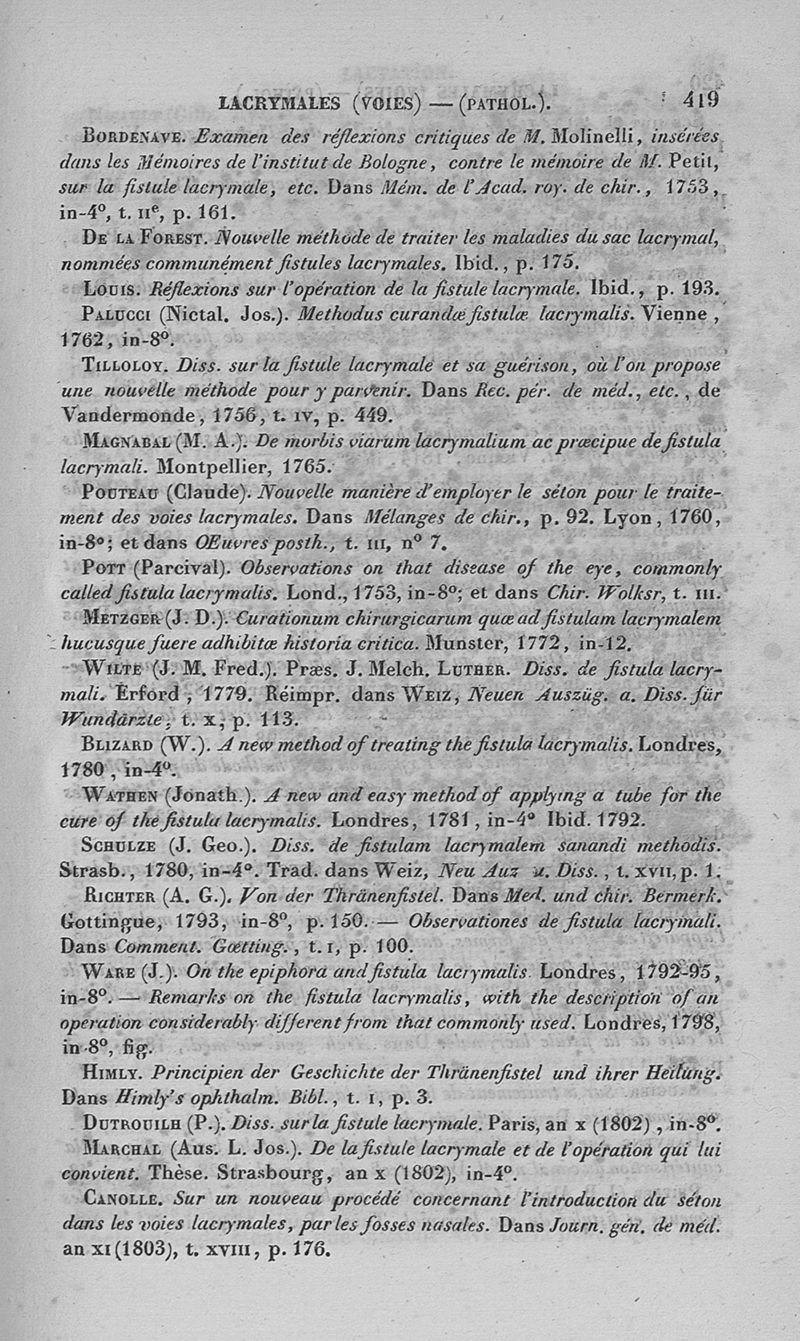 LACRYMALES (VOIES) — (PATHOL.). 419
BORDENAVE. Examen des réflexions critiques de M. Molinelli, insérées
dans les Mémoires de l'institut de Bologne, contre le mémoire de M. Petit,
sur la fistule lacrymale, etc. Dans Mém. de l'Acad. roy. de chir., 1753,
in-4º, t. IIe, p. 161.
DE LA FOREST. Nouvelle méthode de traiter les maladies du sac lacrymal,
nommées communément fistules lacrymales. Ibid., p. 175.
LOUIS. Réflexions sur l'opération de la fistule lacrymale. Ibid., p. 193.
PALUCCI (Nictal. Jos.). Methodus curandæ fistulæ lacrymalis. Vienne,
1762, in-8º.
TILLOLOY. Diss. sur la fistule lacrymale et sa guérison, où l'on propose
une nouvelle méthode pour y parvenir. Dans Rec. pér. de méd., etc., de
Vandermonde, 1756, t. IV, p. 449.
MAGNABAL (M. A.). De morbis viarum lacrymalium ac præcipue de fistula
lacrymali. Montpellier, 1765.
POUTEAU (Claude). Nouvelle manière d'employer le séton pour le traite-
ment des voies lacrymales. Dans Mélanges de chir., p. 92. Lyon, 1760,
in-8º; et dans Œuvres posth., t. III, nº 7.
POTT (Parcival). Observations on that disease of the eye, commonly
called fistula lacrymalis. Lond., 1753, in-8º; et dans Chir. Wolksr, t. III.
METZGER (J. D.). Curationum chirurgicarum quæ ad fistulam lacrymalem
hucusque fuere adhibitæ historia critica. Munster, 1772, in-12.
WILTE (J. M. Fred.). Præs. J. Melch. LUTHER. Diss. de fistula lacry-
mali. Erford, 1779. Réimpr. dans WEIZ, Neuen Auszüg. a. Diss. für
Wundärzte, t. X, p. 113.
BLIZARD (W.). A new method of treating the fistula lacrymalis. Londres,
1780, in-4º.
WATHEN (Jonath.). A new and easy method of applying a tube for the
cure of the fistula lacrymalis. Londres, 1781, in-4º Ibid. 1792.
SCHULZE (J. Geo.). Diss. de fistulam lacrymalem sanandi methodis.
Strasb., 1780, in-4º. Trad. dans Weiz, Neu Auz u. Diss., t. XVII, p. 1.
RICHTER (A. G.). Von der Thränenfistel. Dans Med. und chir. Bermerk.
Gottingue, 1793, in-8º, p. 150. — Observationes de fistula lacrymali.
Dans Comment. Gœtting., t. I, p. 100.
WARE (J.). On the epiphora and fistula lacrymalis. Londres, 1792-95,
in-8º. — Remarks on the fistula lacrymalis, with the description of an
operation considerably different from that commonly used. Londres, 1798,
in-8º, fig.
HIMLY. Principien der Geschichte der Thränenfistel und ihrer Heilung.
Dans Himly's ophthalm. Bibl., t. I, p. 3.
DUTROUILH (P.). Diss. sur la fistule lacrymale. Paris, an X (1802), in-8º.
MARCHAL (Aus. L. Jos.). De la fistule lacrymale et de l'opération qui lui
convient. Thèse. Strasbourg, an X (1802), in-4º.
CANOLLE. Sur un nouveau procédé concernant l'introduction du séton
dans les voies lacrymales, par les fosses nasales. Dans Journ. gén. de méd.
an XI (1803), t. XVIII, p. 176.